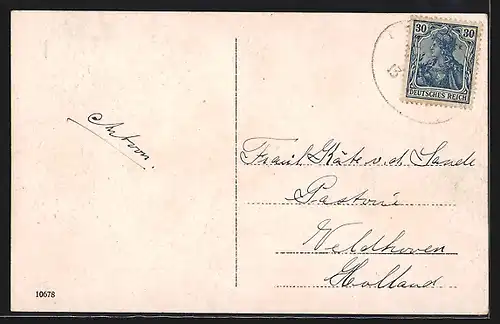 30 30
DEUTSCHES REICH
13
Antoon.
Fraul. Käte v. d. Sande
Pastorie
Veldhoven
Holland
10678